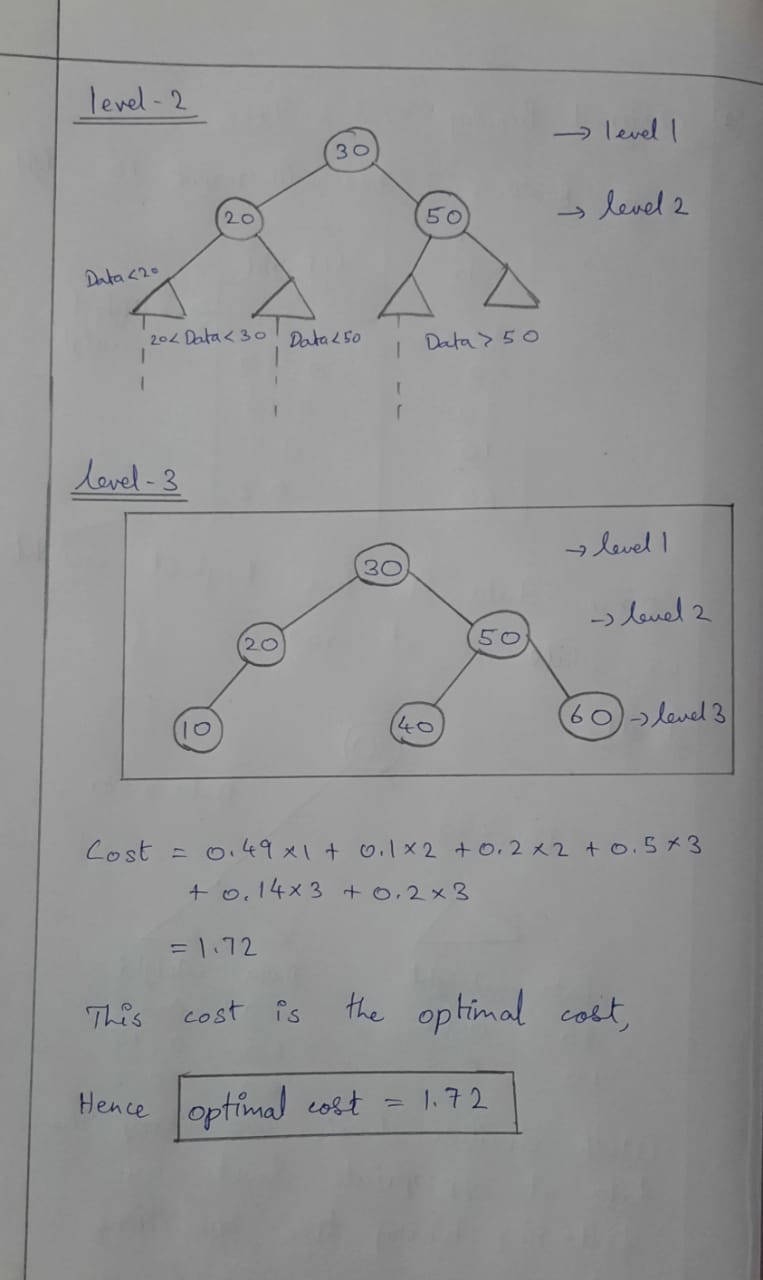 level-2
30
→ level 1
20
50
→ level 2
Data<20
20< Data<30
Data<50
Data>50
level-3
30
→ level 1
20
50
→ level 2
10
40
60
→ level 3
Cost = 0.49×1 + 0.1×2 + 0.2×2 + 0.5×3
+ 0.14×3 + 0.2×3
= 1.72
This cost is the optimal cost,
Hence optimal cost = 1.72